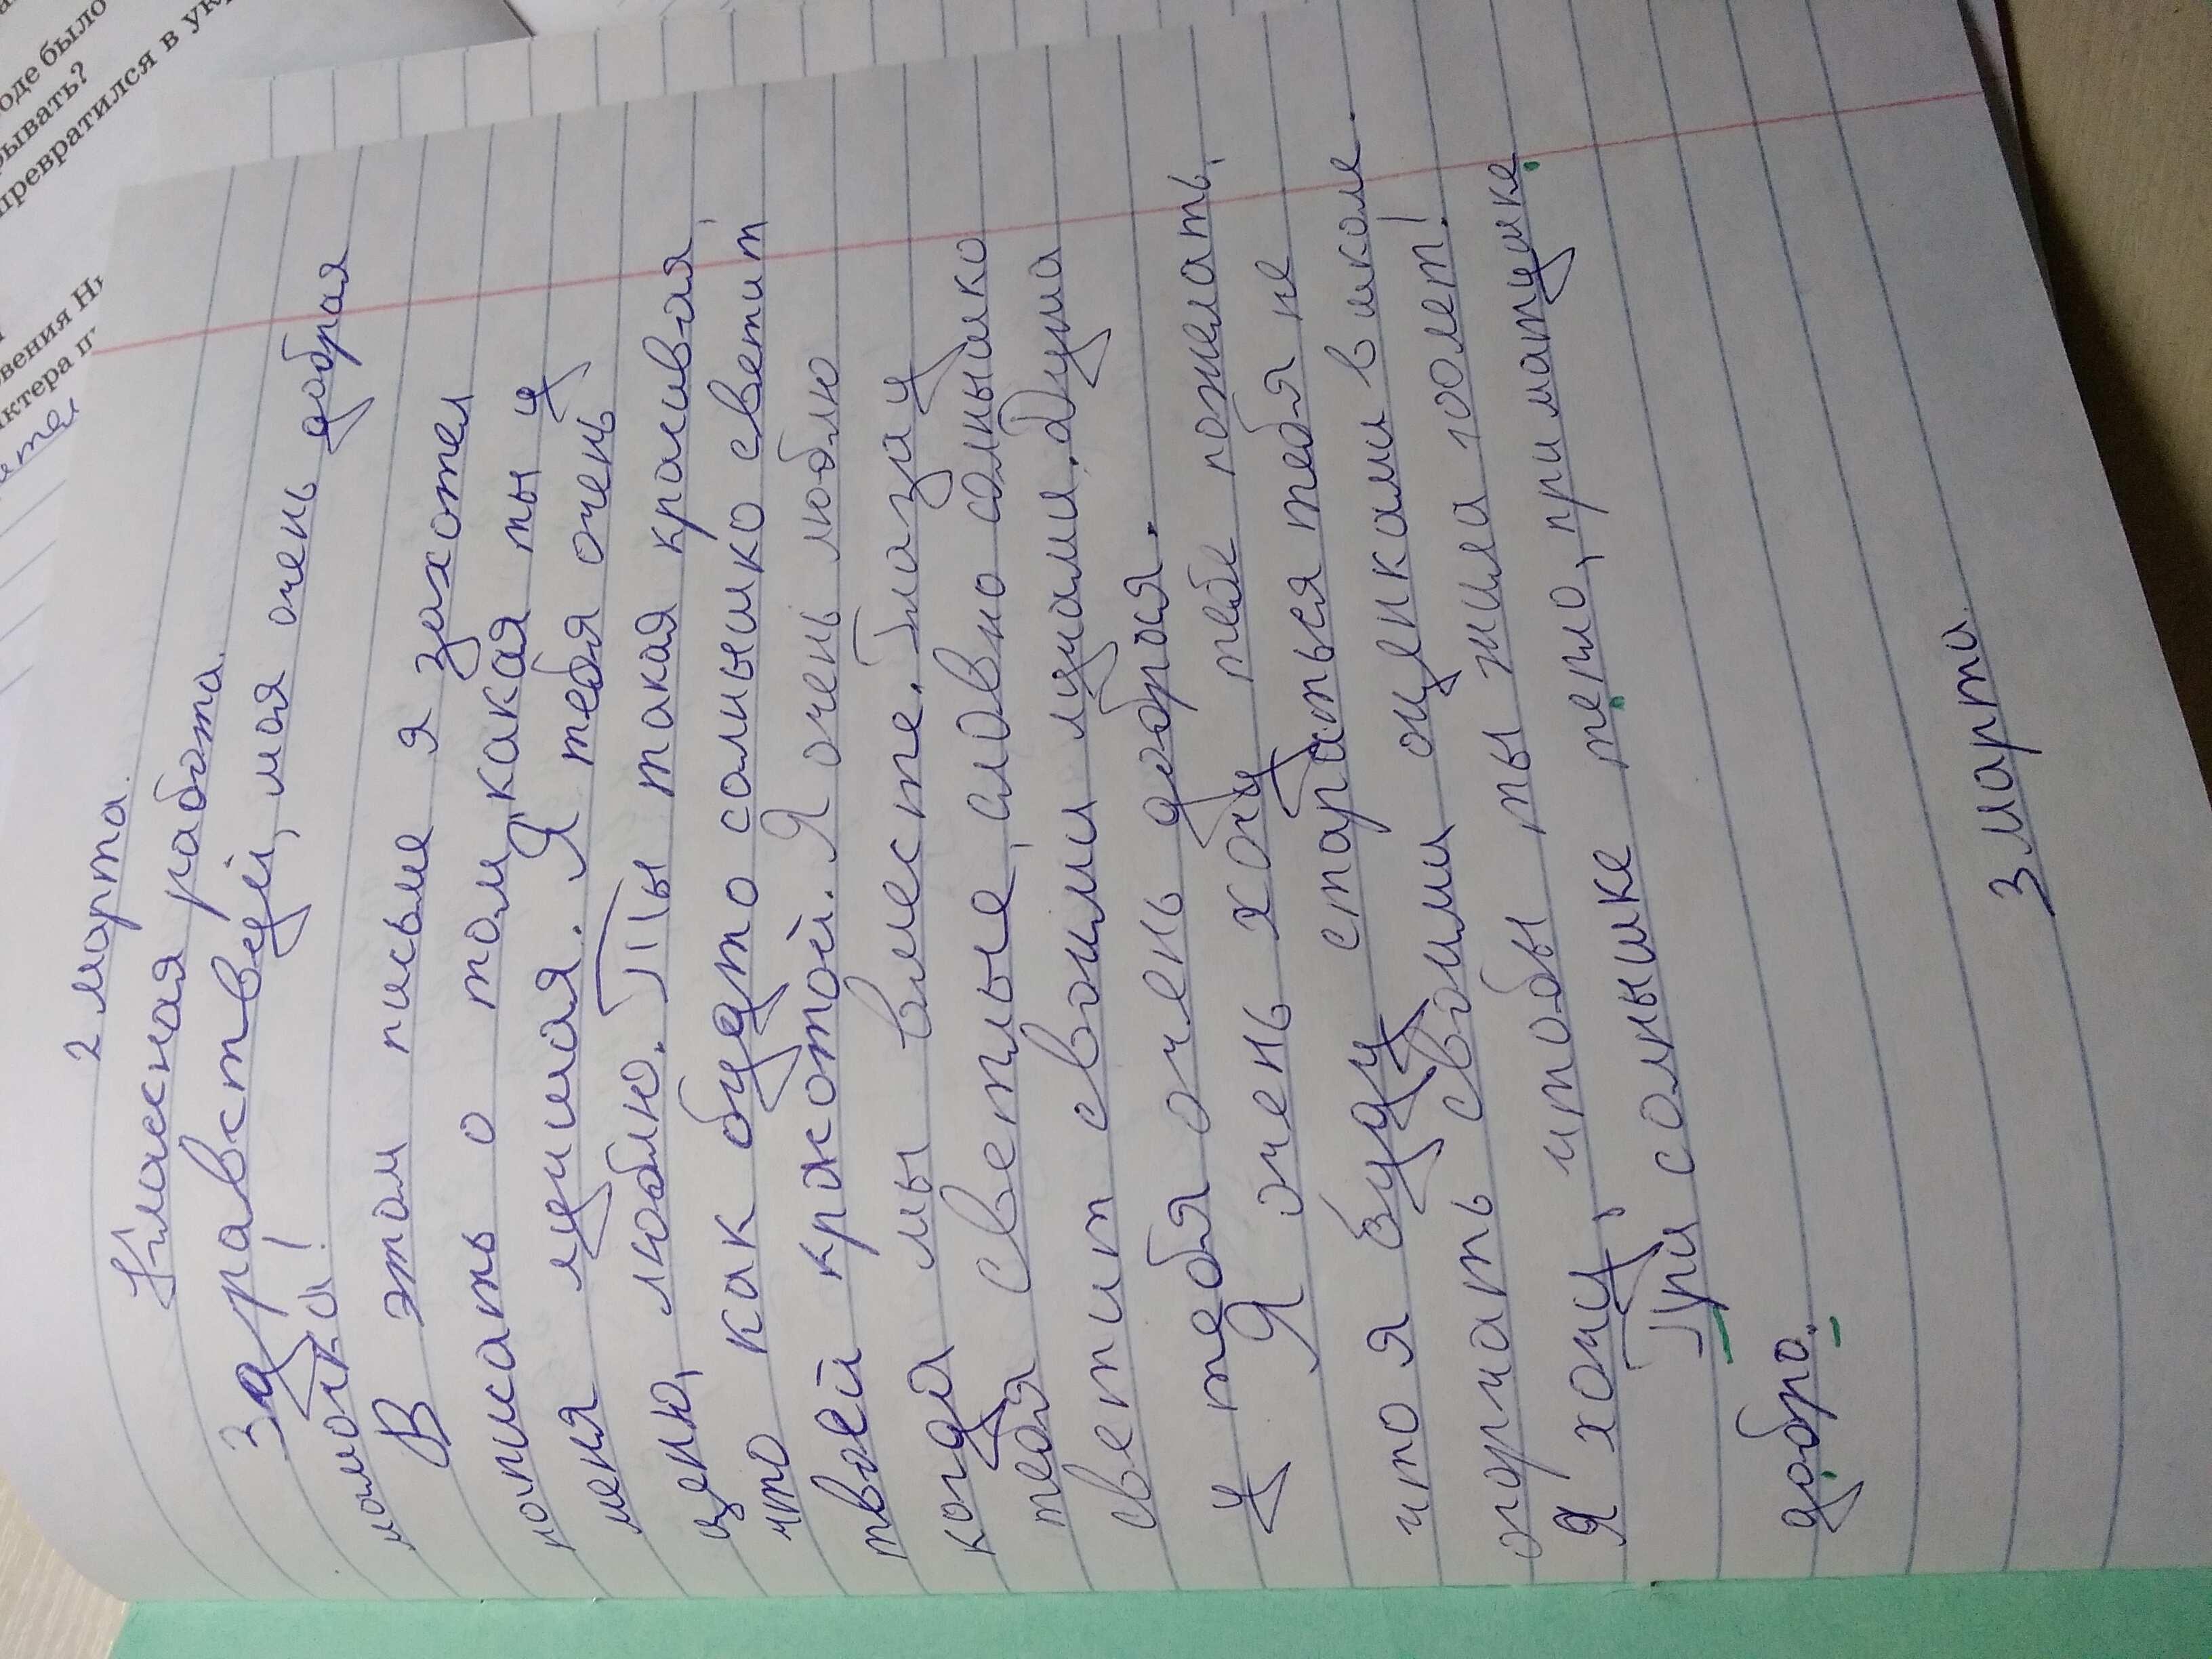 оде было
рывать?
превратился в ук
овения Н
ктера п
2 марта.
Классная работа.
Здравствуй, моя очень добрая
мамочка!
В этом письме я захотел
написать о том, какая ты у
меня лучшая. Я тебя очень
ценю, люблю. Ты такая красивая,
что как будто солнышко светит
твоей красотой. Я очень люблю
когда мы вместе. Глаза у
тебя светлые, словно солнышко
светит своими лучами. Душа
у тебя очень добрая.
Я очень хочу тебе пожелать,
что я буду стараться тебя не
огорчать своими оценками в школе.
Я хочу, чтобы ты жила 100лет!
При солнышке тепло, при матушке
добро.
3 марта.